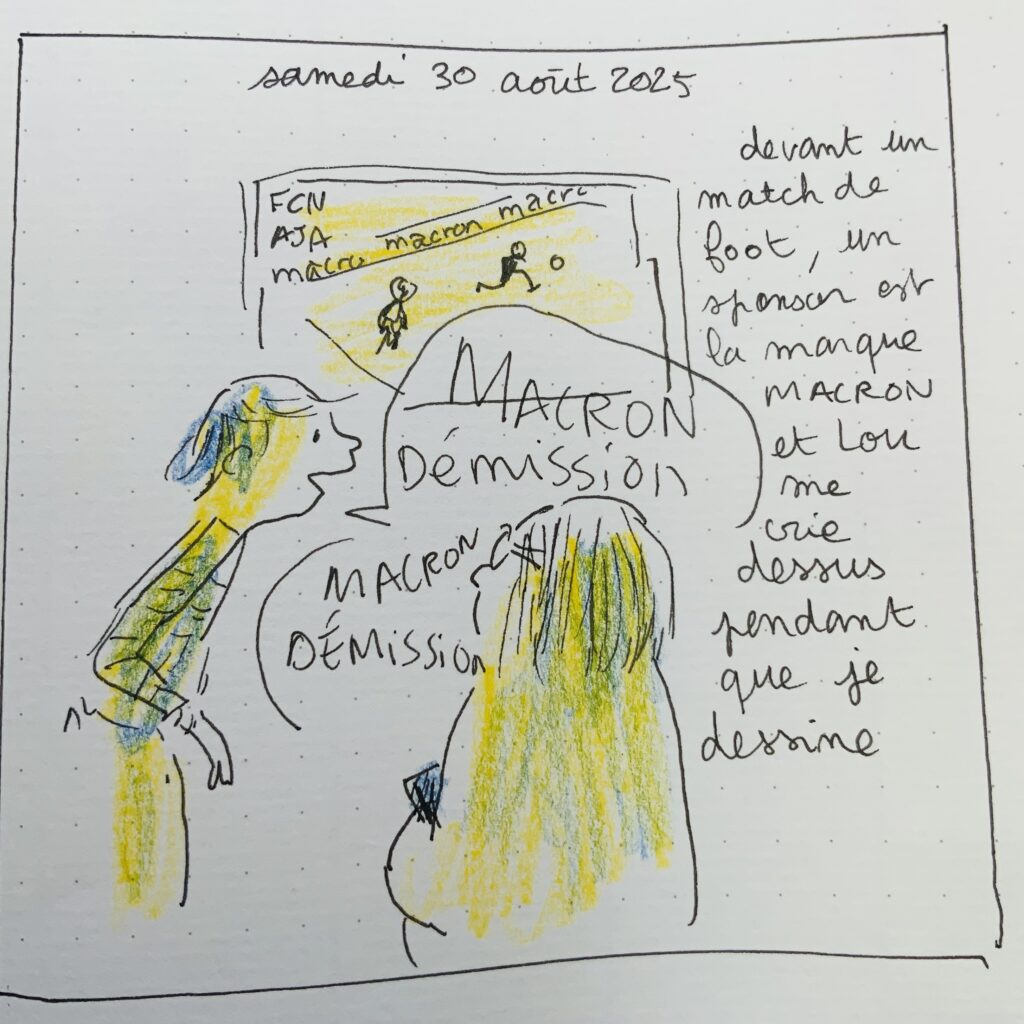 samedi 30 août 2025
FCN
AJA
macro macron macro
MACRON
Démission
MACRON
DÉMISSION
devant un
match de
foot, un
sponsor est
la marque
MACRON
et Lou
me
crie
dessus
pendant
que je
dessine